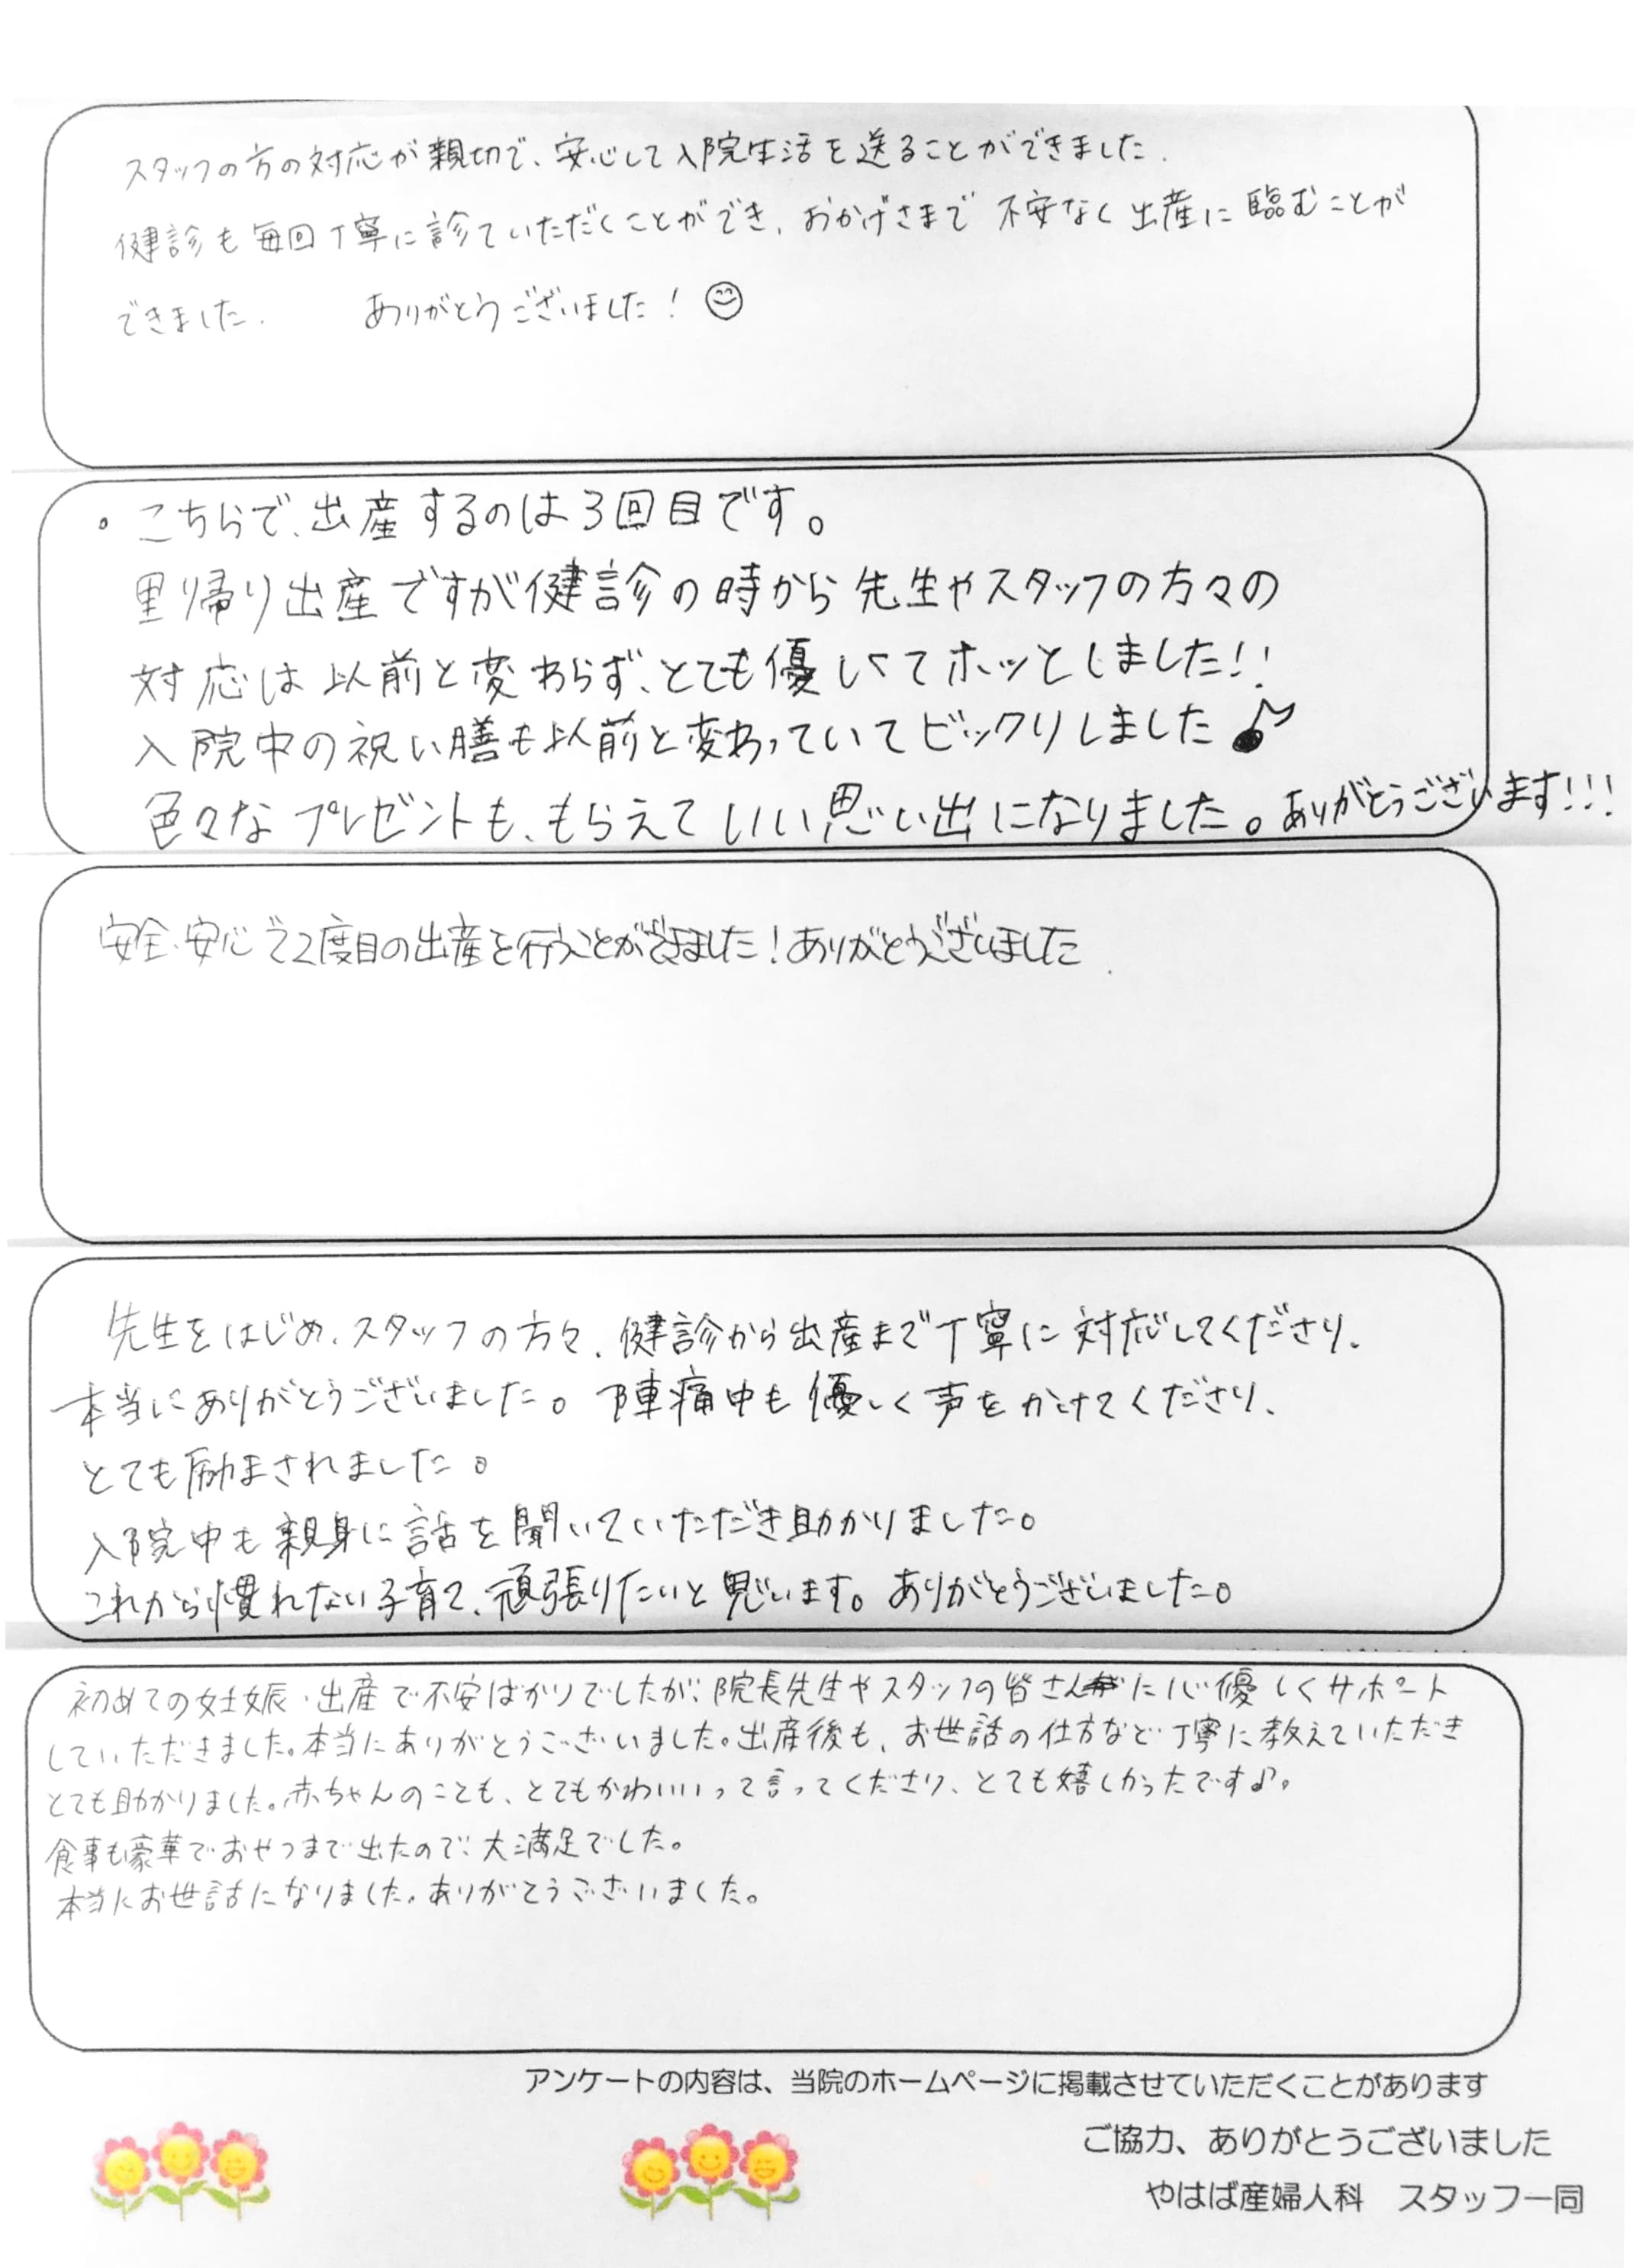 スタッフの方の対応が親切で、安心して入院生活を送ることができました.
健診も毎回丁寧に診ていただくことができ、おかげさまで不安なく出産に臨むことが
できました. ありがとうございました！
・こちらで、出産するのは3回目です。
里帰り出産ですが健診の時から先生やスタッフの方々の
対応は以前と変わらず、とても優しくてホッとしました!!
入院中の祝い膳も以前と変わっていてビックリしました♪
色々なプレゼントも、もらえていい思い出になりました。ありがとうございます!!!
安全・安心で2度目の出産を行うことができました！ありがとうございました.
先生をはじめ、スタッフの方々、健診から出産まで丁寧に対応してくださり、
本当にありがとうございました。陣痛中も優しく声をかけてくださり、
とても励まされました。
入院中も親身に話を聞いていただき助かりました。
これから慣れない子育て、頑張りたいと思います。ありがとうございました。
初めての妊娠・出産で不安ばかりでしたが、院長先生やスタッフの皆さんに心優しくサポート
していただきました。本当にありがとうございました。出産後も、お世話の仕方など丁寧に教えていただき
とても助かりました。赤ちゃんのことも、とてもかわいいって言ってくださり、とても嬉しかったです♪。
食事も豪華でおやつまで出たので、大満足でした。
本当にお世話になりました。ありがとうございました。
アンケートの内容は、当院のホームページに掲載させていただくことがあります
ご協力、ありがとうございました
やはば産婦人科　スタッフ一同